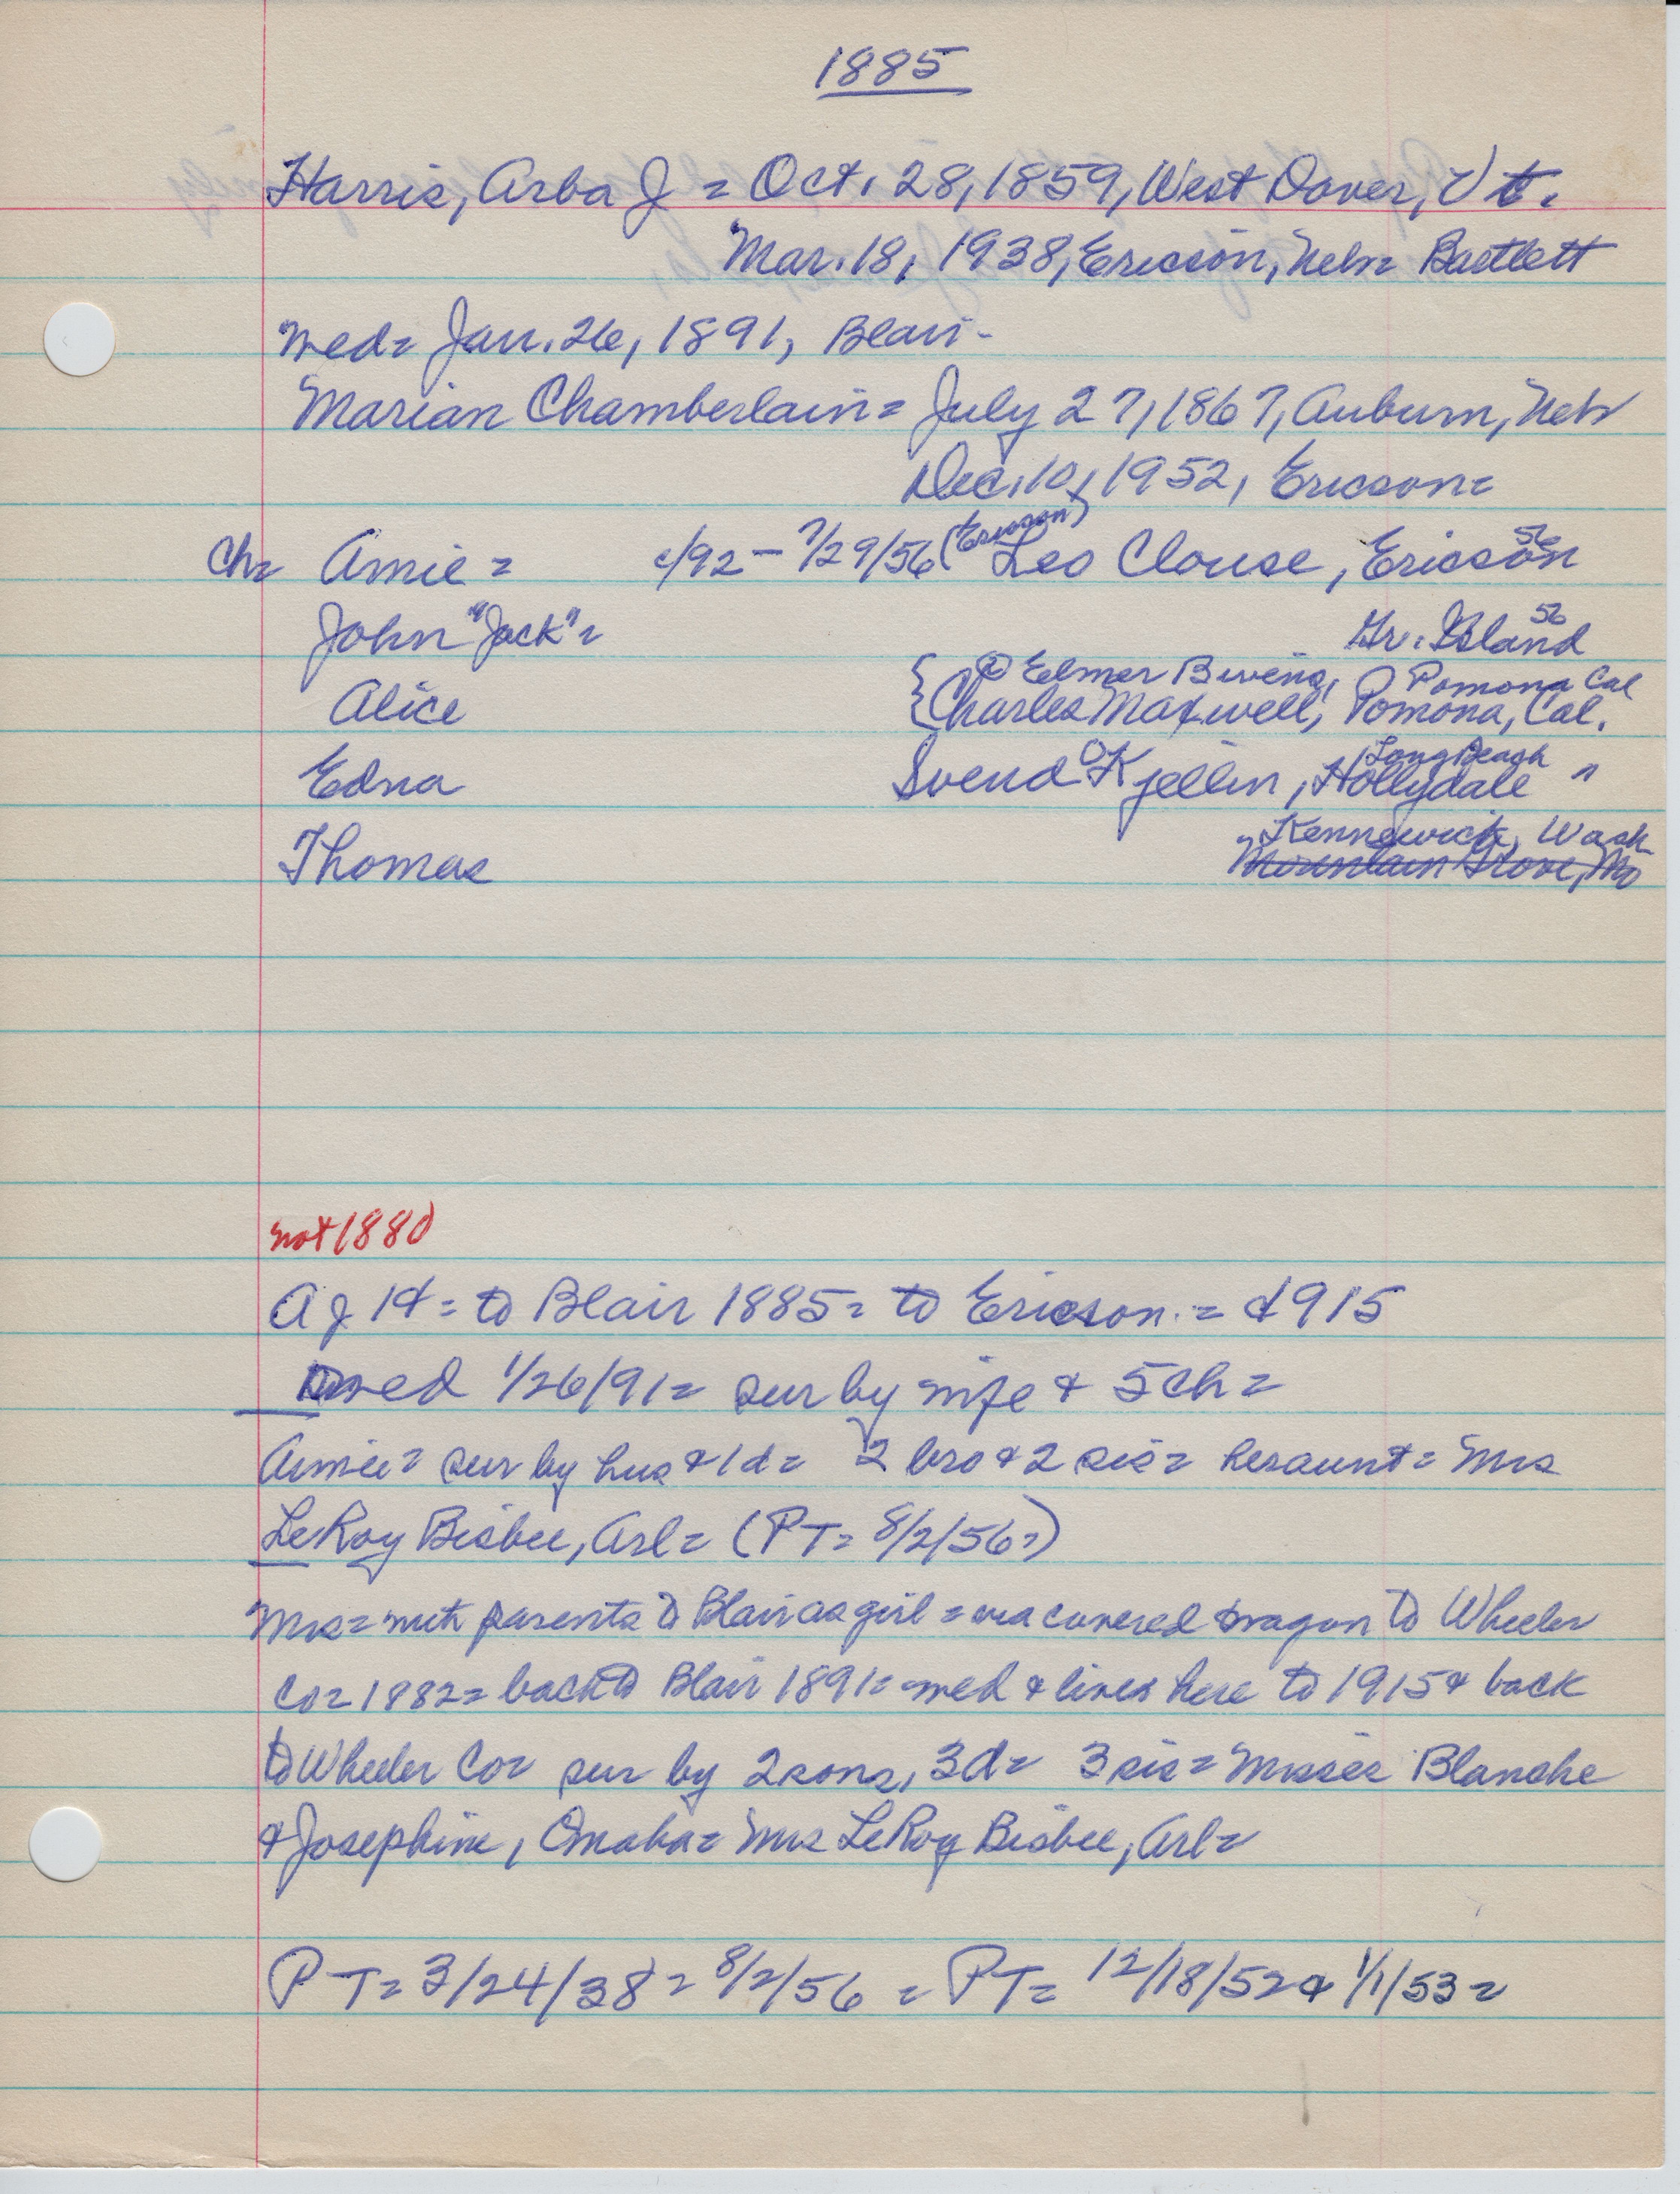 1885
Harris, Arba J = Oct. 28, 1859, West Dover, Vt.
Mar. 18, 1938, Ericson, Nebr= Bartlett
med= Jan. 26, 1891, Blair-
Marian Chamberlain= July 27, 1867, Auburn, Nebr
Dec. 10, 1952, Ericson=
Ch= Amie = c/92 - 7/29/56 (Ericson) Leo Clouse, Ericson 56
John "Jack"= Gr. Island 56
② Elmer Bivens, Pomona Cal
Alice { Charles Maxwell, Pomona, Cal.
Long Beach
Edna Svend O Kjellin, Hollydale "
Kennewick, Wash
Thomas Mountain Grove, Mo
not 1880
A J H = to Blair 1885 = to Ericson = c/915
med 1/26/91= sur by wife & 5ch=
Amie= sur by hus & 1d= 2 bro & 2 sis= her aunt= Mrs
LeRoy Bisbee, Arl= (PT= 8/2/56=)
Mrs= with parents to Blair as girl = via covered wagon to Wheeler
Co= 1882= back to Blair 1891= med & lives here to 1915 & back
to Wheeler Co= sur by 2 sons, 3d= 3 sis= Misses Blanche
& Josephine, Omaha= Mrs LeRoy Bisbee, Arl=
PT= 3/24/38= 8/2/56 = PT= 12/18/52 & 1/1/53=